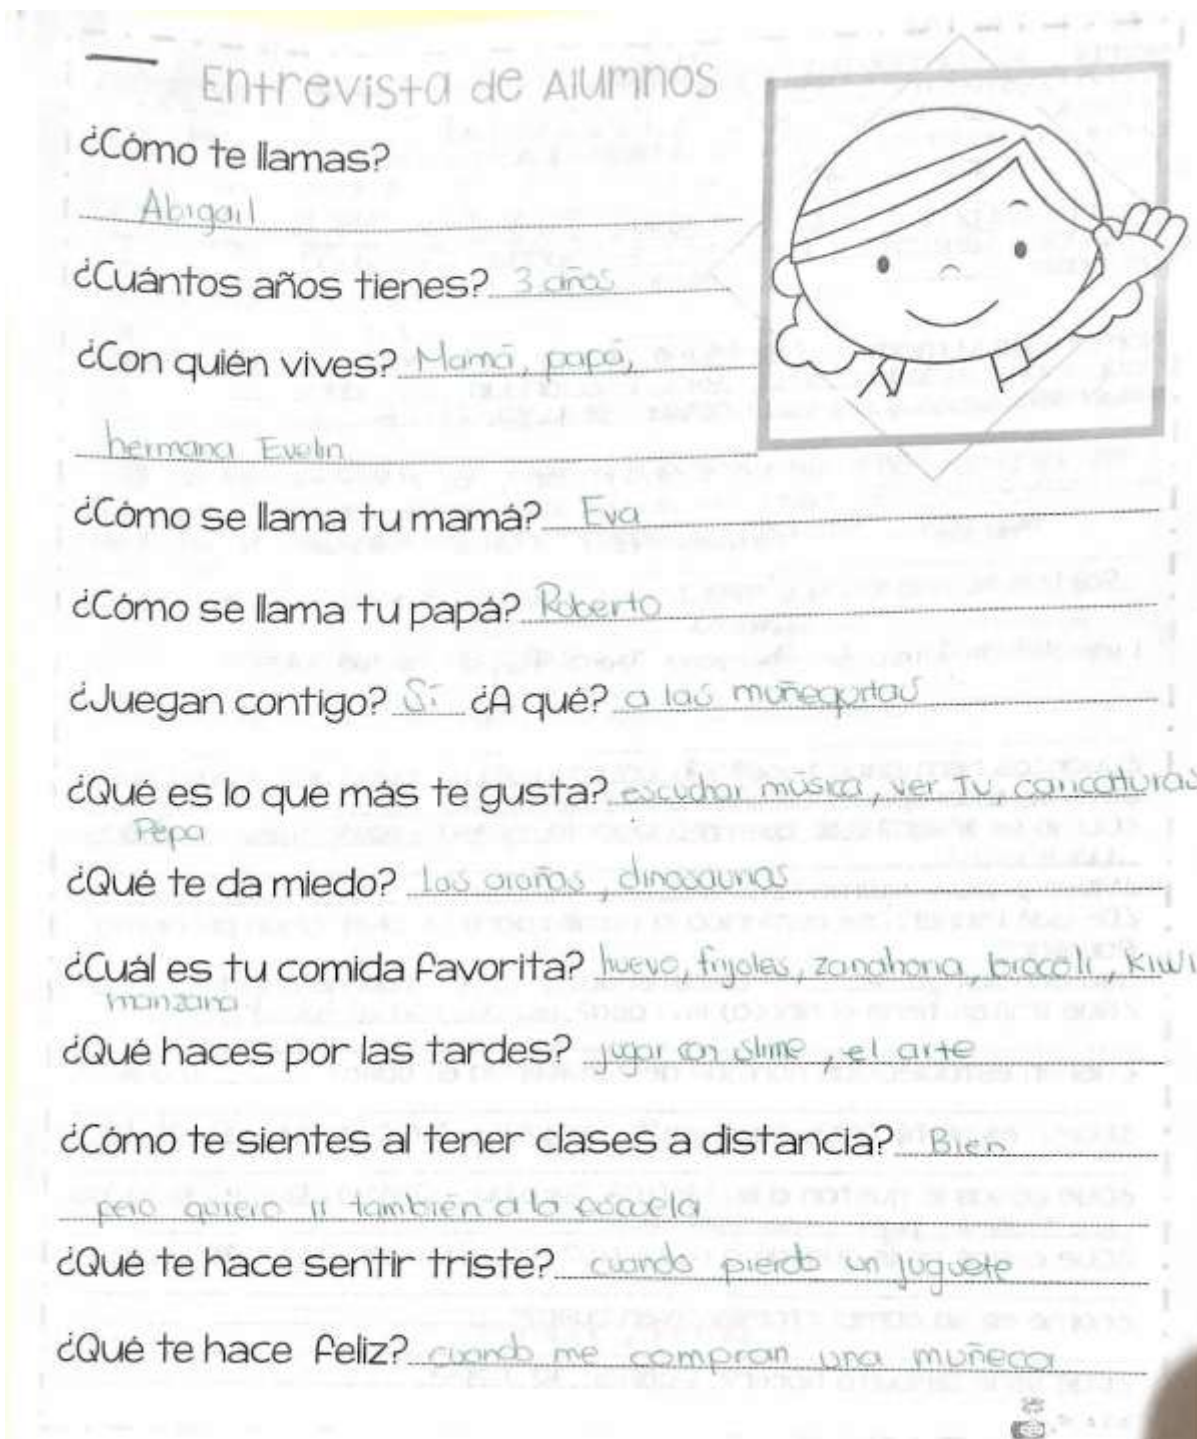 Entrevista de Alumnos
¿Cómo te llamas?
Abigail
¿Cuántos años tienes? 3 años
¿Con quién vives? Mamá, papá,
hermana Evelin
¿Cómo se llama tu mamá? Eva
¿Cómo se llama tu papá? Roberto
¿Juegan contigo? Sí ¿A qué? a las muñequitas
¿Qué es lo que más te gusta? escuchar música, ver Tv, caricaturas
Pepa
¿Qué te da miedo? las arañas, dinosaurios
¿Cuál es tu comida favorita? huevo, frijoles, zanahoria, brocoli, kiwi
manzana
¿Qué haces por las tardes? jugar con slime, el arte
¿Cómo te sientes al tener clases a distancia? Bien
pero quiero ir también a la escuela
¿Qué te hace sentir triste? cuando pierdo un juguete
¿Qué te hace feliz? cuando me compran una muñeca